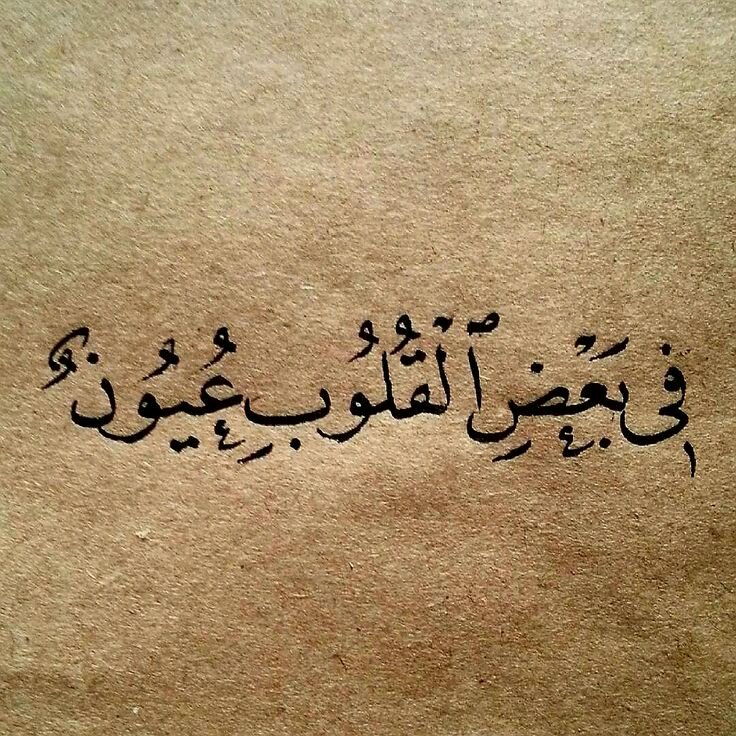 فِى بَعْضِ ٱلْقُلُوبِ عُيُونٌ